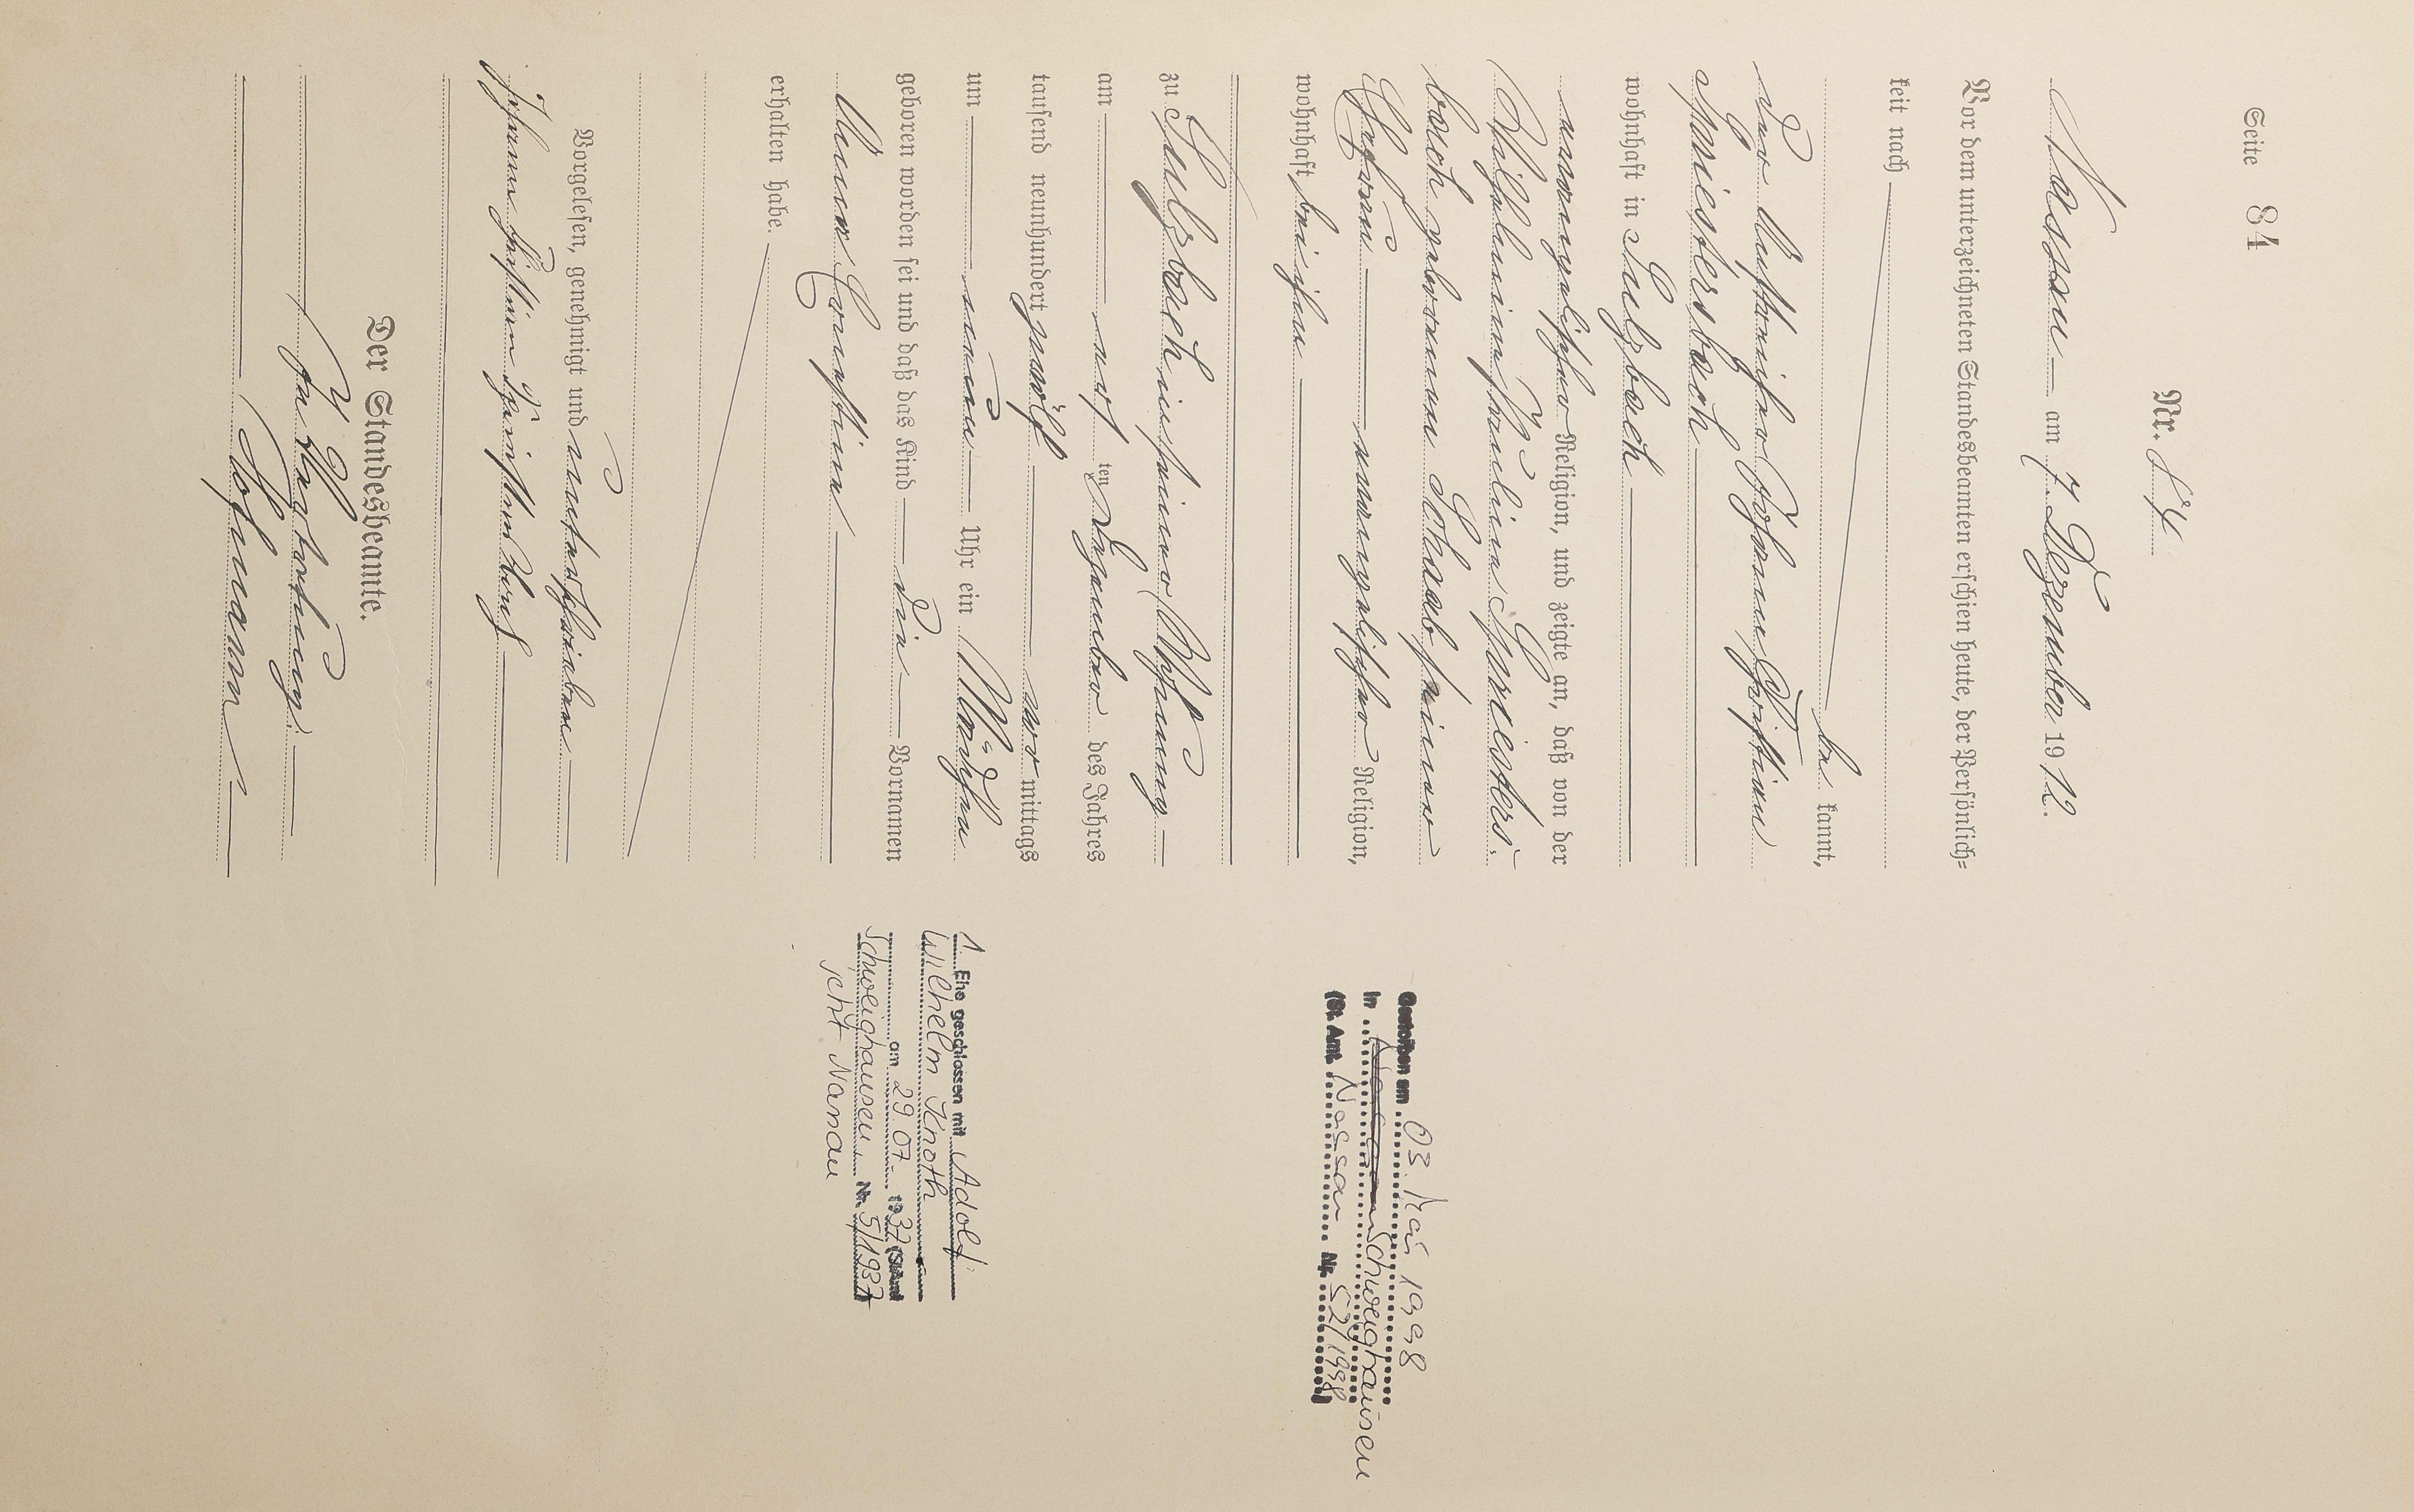 Seite 84
Nr. 84
Nassau am 7. Dezember 1912.
Vor dem unterzeichneten Standesbeamten erschien heute, der Persönlich=
keit nach
be kannt,
der Christian
Gariestersbach
wohnhaft in Sulzbach
evangelischer Religion, und zeigte an, daß von der
Wilhelmine Pauline Gariesters-
bach geborenen Schaab seiner
Ehefrau evangelischer Religion,
wohnhaft bei ihm
zu Sulzbach in seiner Wohnung
am acht ten Dezember des Jahres
tausend neunhundert zwölf vor mittags
um neun Uhr ein Mädchen
geboren worden sei und daß das Kind die Vornamen
Anna Christine
erhalten habe.
Vorgelesen, genehmigt und unterschrieben
Johann Christian
Der Standesbeamte.
In Vertretung:
Hofmann
Gestorben am 03. Mai 1998
in Schweighausen
(St. Amt Nassau Nr. 52/1998)
1. Ehe geschlossen mit Adolf
Wilhelm Knoth
am 29.07. 1937 (StAmt
Schweighausen, Nr. 5/1937)
jetzt Nassau